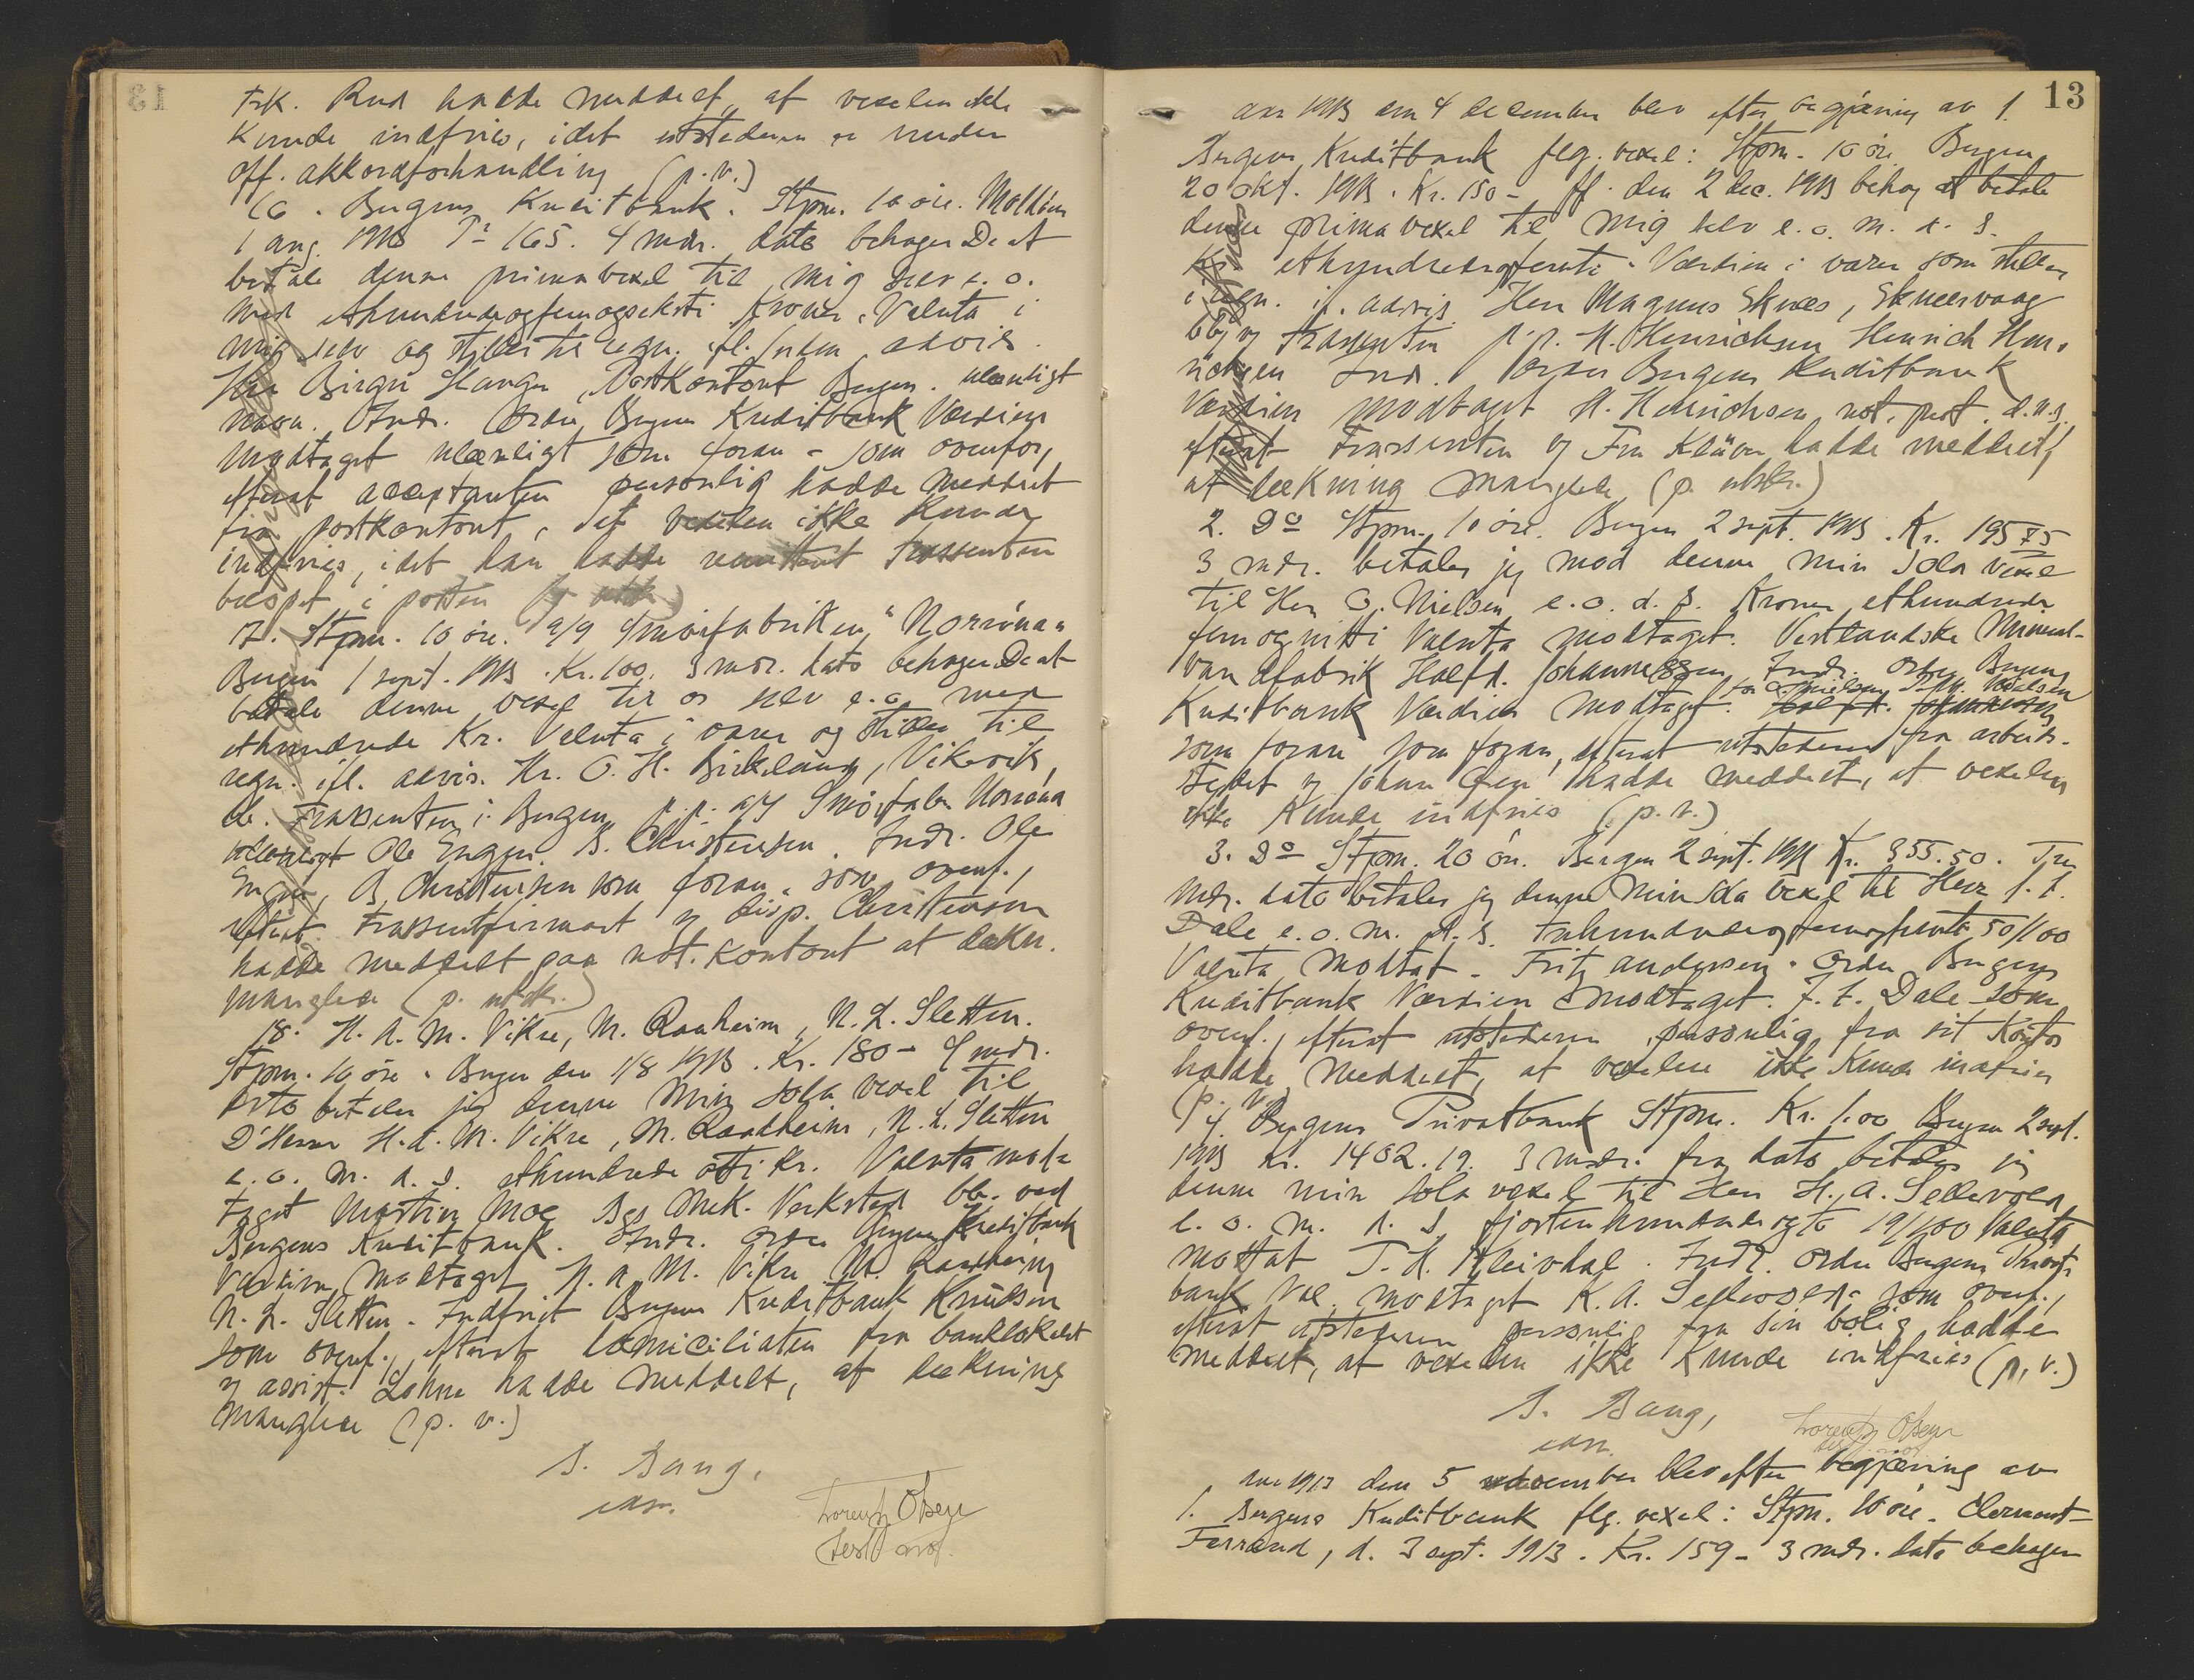 Frk. Rud hadde meddelt, at vexelen ikke
kunde indfries, idet utstederen er under
off. akkordforhandling (p.v.)
16. Bergens Kreditbank. Stpm. 10 öre.
1 aug. 1913 165. 4 mdr. dato behager De at
betale denne primavexel til mig selv e.o.
med ethundredeogfemogseksti Kroner. Valuta i
mig selv og stilles til regn. ifl. / uden advis.
Herr Birger Hauger, Postkontoret Bergen. ulæseligt
navn. Indr. Ordre Bergens Kreditbank Værdien
modtaget ulæseligt som foran - som ovenfor,
efterat acceptanten personlig hadde meddelt
fra postkontoret, at vexelen ikke kunde
indfries, idet han hadde remittert trassenten
beløpet i posten
17. Stpm. 10 öre. A/S Smørfabriken "Norröna"
Bergen 1 sept. 1913. Kr. 100. 3 mdr. dato behager De at
betale denne vexel til os selv e.o. med
ethundrede Kr. Valuta i varer og stilles til
regn. ifl. advis. Hr. O. H. Birkeland, Vikevik,
bb. Trassenten i Bergen p.p. A/S Smörfabr. Norröna
ulæseligt Ole Enger. B. Christensen. Indr. Ole
Enger, B. Christensen som foran. som ovenf.,
efterat trassentfirmaet v. disp. Christensen
hadde meddelt paa not. kontoret at dækn.
manglede (p. utstr.)
18. H. A. M. Vikre, M. Raaheim, N. L. Sletten.
Stpm. 10 öre. Bergen den 1/8 1913. Kr. 180 - 4 mdr.
dato betaler jeg denne min sola vexel til
D'Herrer H. A. M. Vikre, M. Raaheim, N. L. Sletten
e. o. m. d. s. ethundrede otti kr. Valuta mod-
taget Martin Moe Bgs Mek. Verksted bb. ved
Bergens Kreditbank. Indr. Ordre Bergens Kreditbank
Værdien modtaget H. A. M. Vikre M. Raaheim
N. L. Sletten. Indfriet Bergens Kreditbank Knudsen
som ovenf., efterat domiciliaten fra banklokalet
v. assist. Lohne hadde meddelt, at dækning
manglede (p. v.)
S. Bang,
edsv.
Lorentz Olsen
test. not.
13
Aar 1913 den 4 december blev efter begjæring av 1.
Bergens Kreditbank flg. vexel: Stpm. 10 öre. Bergen
20 okt. 1913. Kr. 150 - pr. den 2 dec. 1913 behag at betale
denne prima vexel til mig selv e. o. m. d. s.
Kr. ethundredeogfemti. Værdien i varer som stilles
i regn. if. advis Herr Magnus Eknes, Eknesvaag
bb. Trassenten p. p. H. Henrichsen Henrich Hen-
richsen Indr. Ordre Bergens Kreditbank
Værdien modtaget H. Henrichsen, not. prot. d. u. s.
efterat Trassenten v. Frk. Klüver hadde meddelt,
at dækning manglede (p. utstr.)
2. Do Stpm. 10 öre. Bergen 2 sept. 1913. Kr. 195 75
3 mdr. betaler jeg mod denne min sola vexel
til Herr O. Nielsen e. o. d. s. Kroner ethundrede
femognitti Valuta modtaget. Vestlandske Mineral-
vandfabrik Halfd. Johannessen Indr. Ordre Bergens
Kreditbank Værdien modtaget. for O. Nielsen Nielsen
som foran som foran, efterat utstederen fra arbeids-
stedet v. Johan hadde meddelt, at vexelen
ikke kunde indfries (p. v.)
3. Do Stpm. 20 öre. Bergen 2 sept. 1913 Kr. 355.50. Tre
mdr. dato betaler jeg denne min sola vexel til Herr J. T.
Dale e. o. m. d. s. Trehundredeogfemogfemti 50/100
Valuta modtat - Fritz Andersen. Ordre Bergens
Kreditbank Værdien modtaget. J. T. Dale som
ovenf., efterat utstederen personlig fra sit kontor
hadde meddelt, at vexelen ikke kunde indfries
(p. v.)
4. Bergens Privatbank Stpm. Kr. 1.00 Bergen 2 sept.
1913 Kr. 1402.19. 3 mdr. fra dato betaler jeg
denne min sola vexel til Herr H. A. Sellevold
e. o. m. d. s. fjortenhundredeogto 19/100 Valuta
mottat T. H. Kleivdal. Indr. Ordre Bergens Privat-
bank Val. modtaget K. A. Sellevold - som ovenf.,
efterat utstederen personlig fra sin bolig hadde
meddelt, at vexelen ikke kunde indfries (p. v.)
S. Bang,
edsv.
Lorentz Olsen
Aar 1913 den 5 december blev efter begjæring av
1. Bergens Kreditbank flg. vexel: Stpm. 10 öre. Clermont-
Ferrand, d. 3 sept. 1913. Kr. 159 - 3 mdr. dato behager